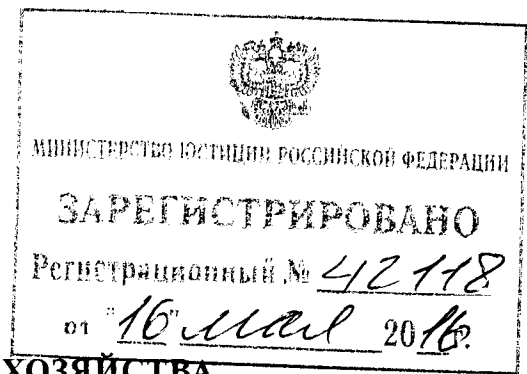 МИНИСТЕРСТВО ЮСТИЦИИ РОССИЙСКОЙ ФЕДЕРАЦИИ
ЗАРЕГИСТРИРОВАНО
Регистрационный № 42118
от "16" мая 2016.
ХОЗЯЙСТВА